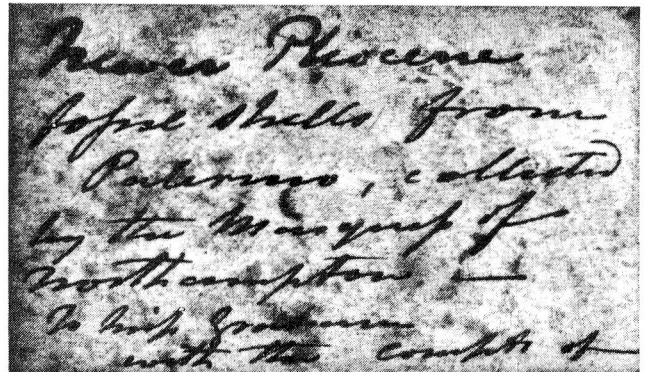 Newer Pliocene
fossil shells from
Palermo, collected
by the Marquess of
Northampton —
To Miss Graham
with the compts of